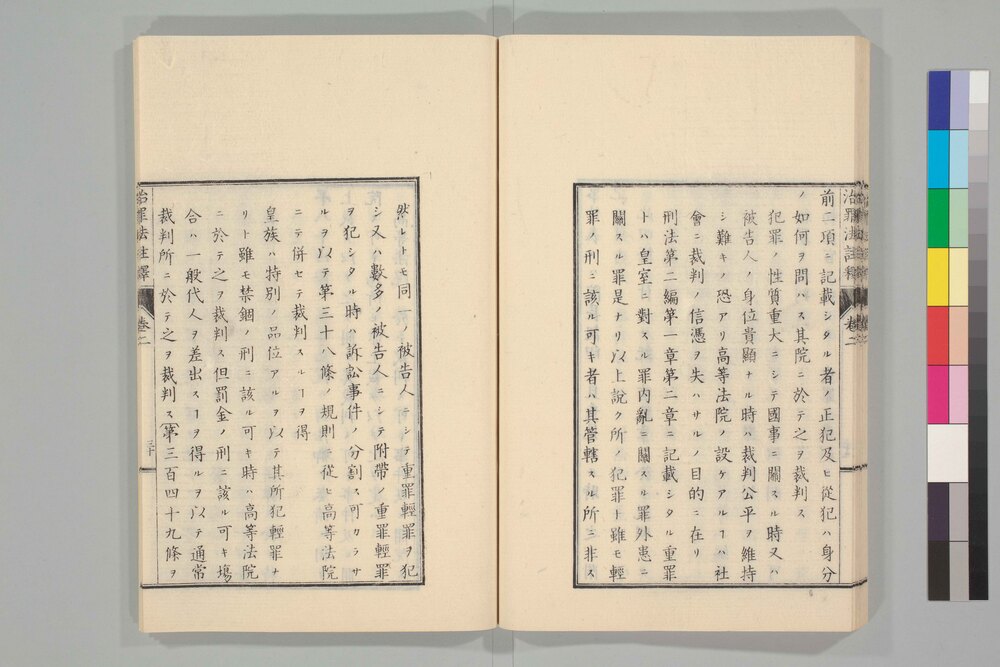 治罪法註釋 卷之二
前二項ニ記載シタル者ノ正犯及ヒ從犯ハ身分
ノ如何ヲ問ハス其院ニ於テ之ヲ裁判ス
犯罪ノ性質重大ニシテ國事ニ關スル時又ハ
被告人ノ身位貴顯ナル時ハ裁判公平ヲ維持
シ難キノ恐アリ高等法院ノ設ケアルヿハ社
會ニ裁判ノ信憑ヲ失ハサルノ目的ニ在リ
刑法第二編第一章第二章ニ記載シタル重罪
トハ皇室ニ對スル罪内亂ニ關スル罪外患ニ
關スル罪是ナリ以上說ク所ノ犯罪ト雖モ輕
罪ノ刑ニ該ル可キ者ハ其管轄スル所ニ非ス
然レトモ同一ノ被告人ニシテ重罪輕罪ヲ犯
シ又ハ數多ノ被告人ニシテ附帶ノ重罪輕罪
ヲ犯シタル時ハ訴訟事件ノ分割ス可カラサ
ルヲ以テ第三十八條ノ規則ニ從ヒ高等法院
ニテ併セテ裁判スルヿヲ得
皇族ハ特別ノ品位アルヲ以テ其所犯輕罪ナ
リト雖モ禁錮ノ刑ニ該ル可キ時ハ高等法院
ニ於テ之ヲ裁判ス但罰金ノ刑ニ該ル可キ塲
合ハ一般代人ヲ差出スヿヲ得ルヲ以テ通常
裁判所ニ於テ之ヲ裁判ス(第三百四十九條ヲ
治罪法註釋 卷之二